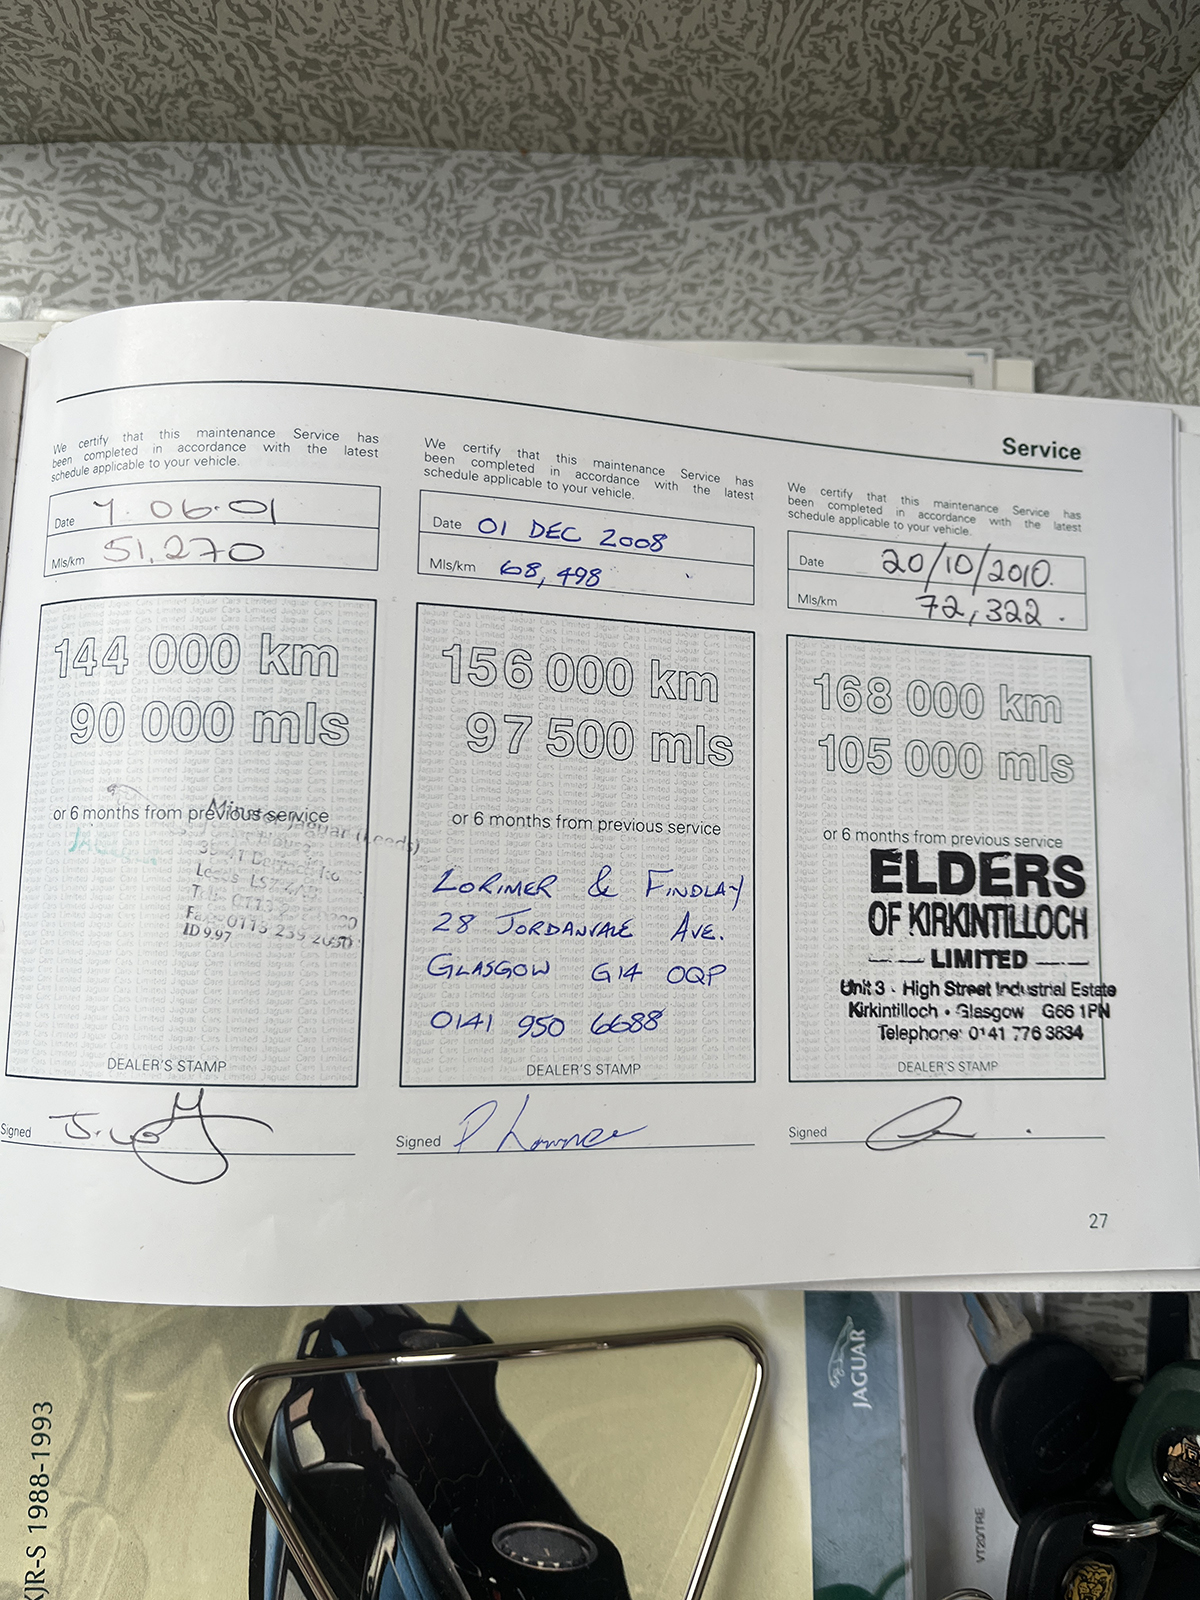 Service
We certify that this maintenance Service has
been completed in accordance with the latest
schedule applicable to your vehicle.
Date 7.06.01
Mls/km 51,270
144 000 km
90 000 mls
or 6 months from previous service
Jaguar (Leeds)
Fax: 0113 239 2050
ID 9.97
DEALER'S STAMP
Signed
We certify that this maintenance Service has
been completed in accordance with the latest
schedule applicable to your vehicle.
Date 01 DEC 2008
Mls/km 68,498
156 000 km
97 500 mls
or 6 months from previous service
LORIMER & FINDLAY
28 JORDANVALE AVE.
GLASGOW G14 0QP
0141 950 6688
DEALER'S STAMP
Signed
We certify that this maintenance Service has
been completed in accordance with the latest
schedule applicable to your vehicle.
Date 20/10/2010.
Mls/km 72,322.
168 000 km
105 000 mls
or 6 months from previous service
ELDERS
OF KIRKINTILLOCH
LIMITED
Unit 3 - High Street Industrial Estate
Kirkintilloch • Glasgow G66 1PN
Telephone: 0141 776 3834
DEALER'S STAMP
Signed
27
XJR-S 1988-1993
JAGUAR
VT20/TRE